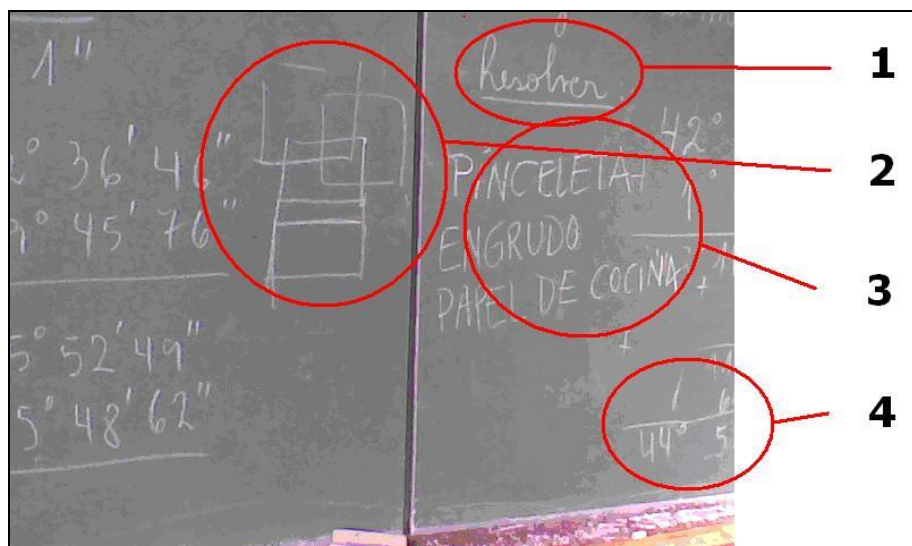 1"
36' 46"
45' 76"
5° 52' 49"
5' 48' 62"
Resolver
42°
PINCELETA
1°
ENGRUDO
PAPEL DE COCINA
44° 5
1
2
3
4